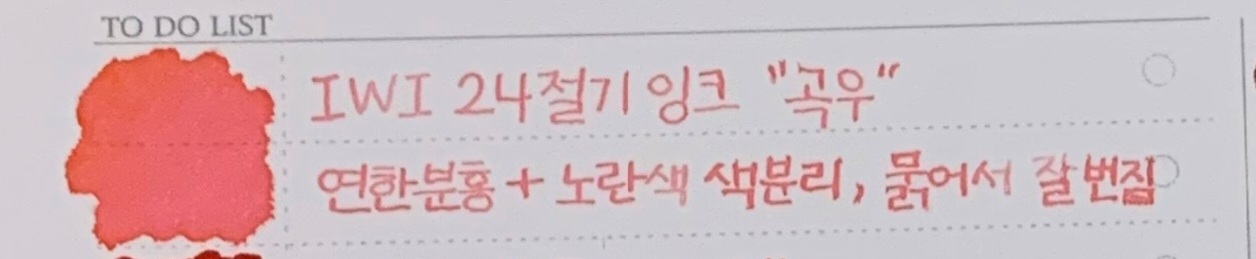 TO DO LIST
IWI 24절기 잉크 "곡우"
연한분홍 + 노란색 색분리, 묽어서 잘 번짐